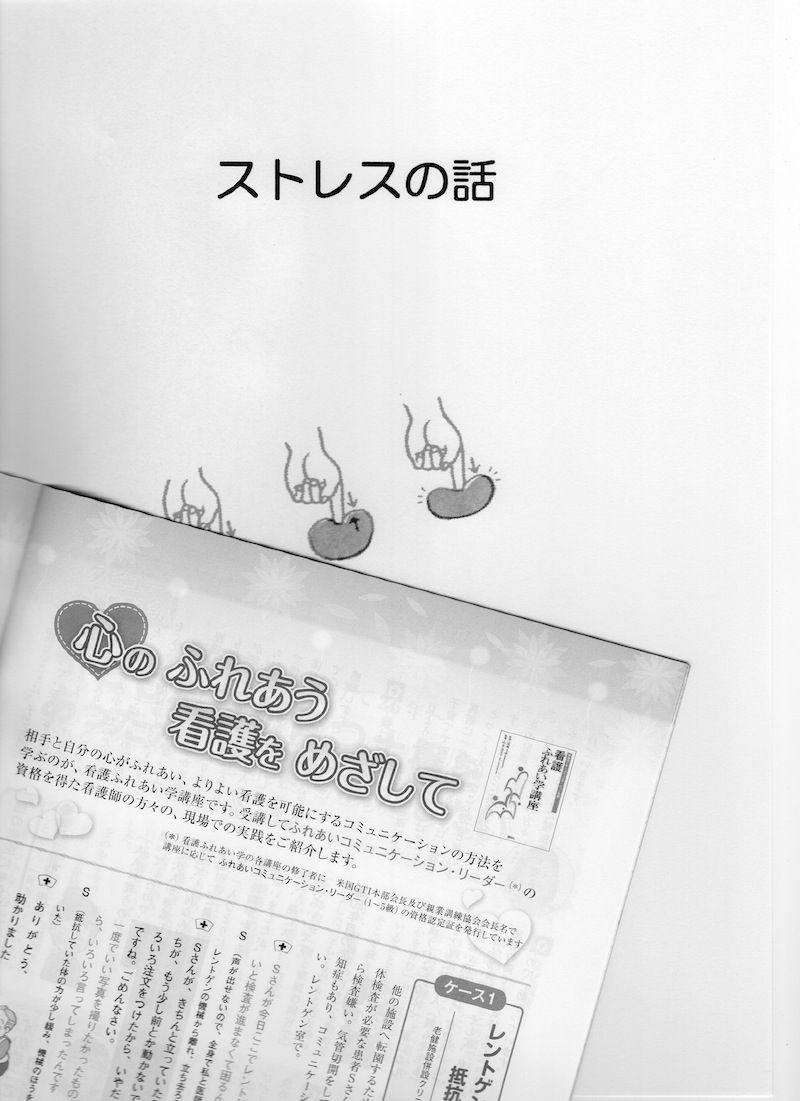 ストレスの話
心の ふれあう
看護を めざして
相手と自分の心がふれあい、よりよい看護を可能にするコミュニケーションの方法を
学ぶのが、看護ふれあい学講座です。受講してふれあいコミュニケーション・リーダー(*)の
資格を得た看護師の方々の、現場での実践をご紹介します。
(*)看護ふれあい学の各講座の修了者に 米国GTI本部会長及び親業訓練協会会長名で
講座に応じて ふれあいコミュニケーション・リーダー(1~5級)の資格認定証を発行しています
看護
ふれあい学講座
ケース1
レントゲン
抵抗
老健施設併設クリ
他の施設へ転園するた
体検査が必要な患者Sさ
ら検査嫌い。気管切開をし
知症もあり、コミュニケー
い。レントゲン室で。
Sさんが今日ここでレント
いと検査が進まなくて困るん
S
(声が出せないので、全身で私と医師
レントゲンの機械から離れ、立ち去ろ
Sさんが、きちんと立っていた
ちが、もう少し前とか動かないで
ろいろ注文をつけたから、いやだ
ですね。ごめんなさい。
一度でいい写真を撮りたかったもの
ら、いろいろ言ってしまったんです
S
(抵抗していた体の力が少し緩み、機械のほうを
いた)
ありがとう、
助かりました